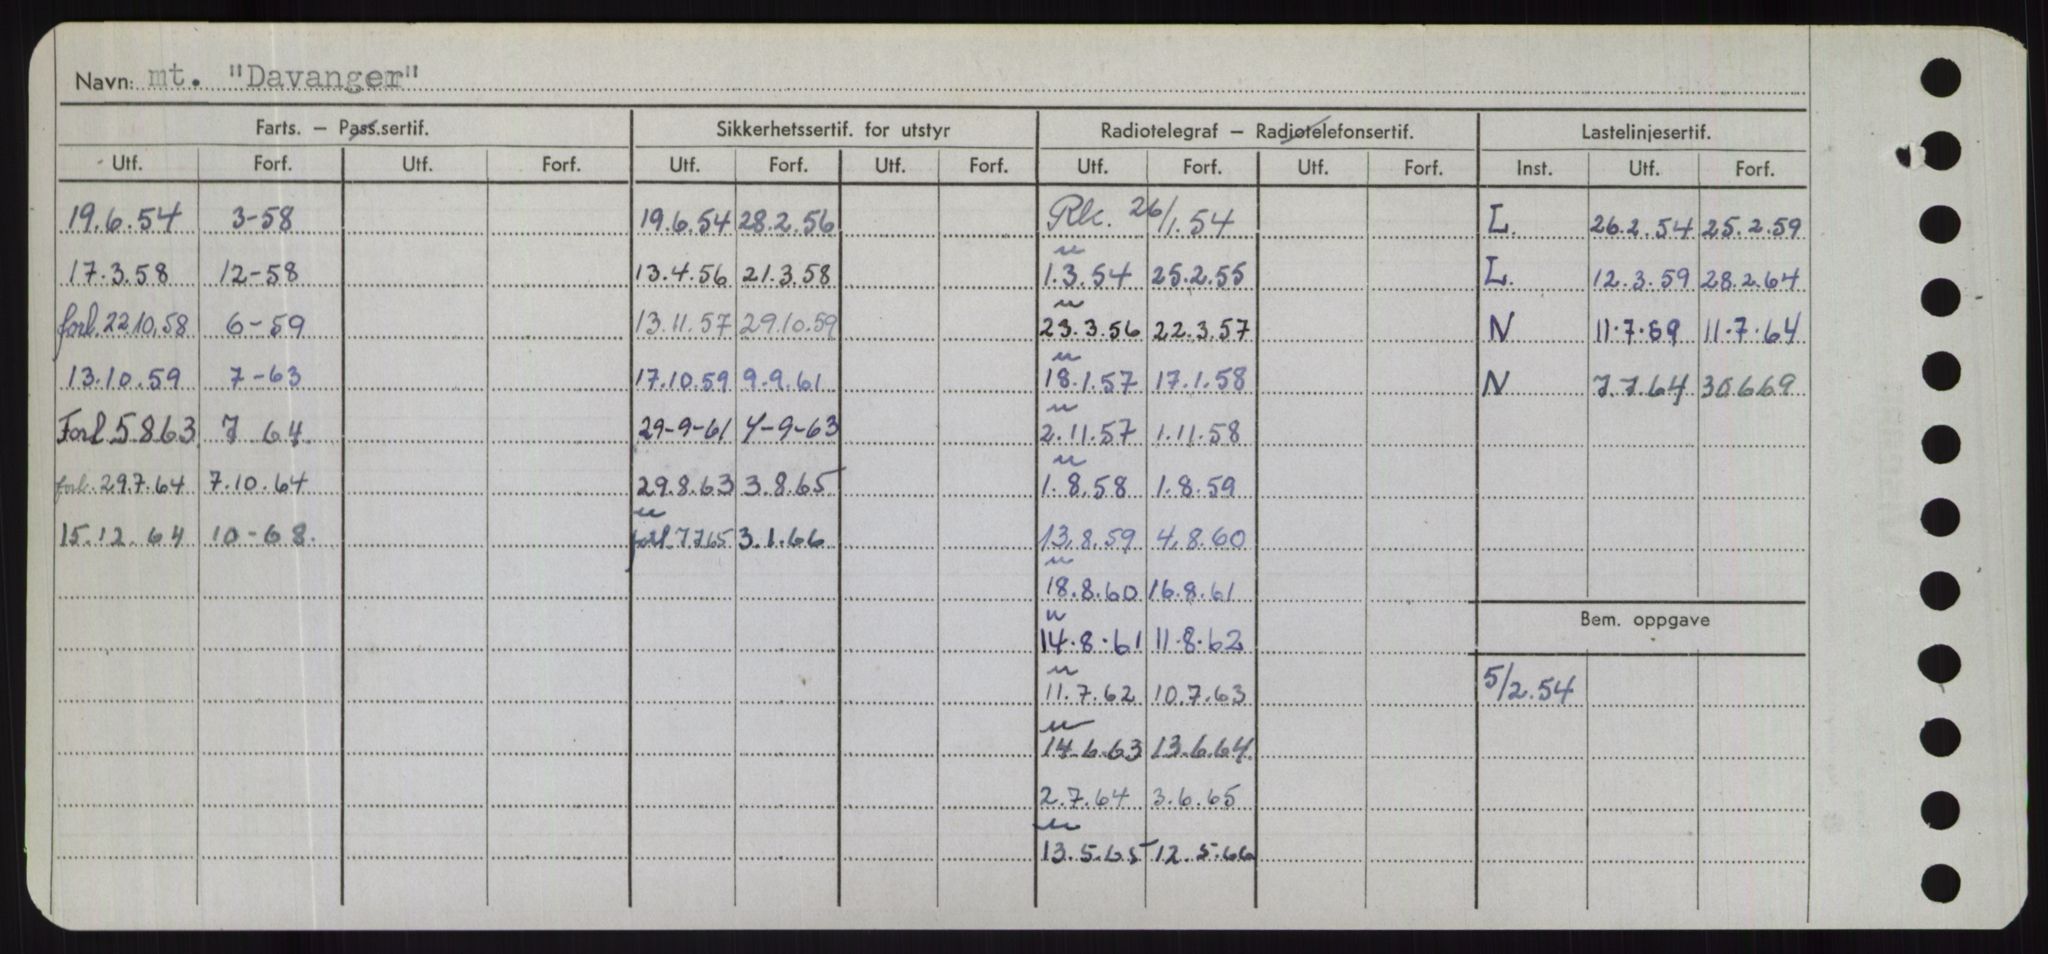 Navn: mt. "Davanger"
Farts. – Pass.sertif. Sikkerhetssertif. for utstyr Radiotelegraf – Radiotelefonsertif. Lastelinjesertif.
Utf. Forf. Utf. Forf. Utf. Forf. Utf. Forf. Utf. Forf. Utf. Forf. Inst. Utf. Forf.
19.6.54 3-58 19.6.54 28.2.56 Rk. 26/1.54 L. 26.2.54 25.2.59
17.3.58 12-58 13.4.56 21.3.58 " 1.3.54 25.2.55 L. 12.3.59 28.2.64
forl. 22.10.58 6-59 13.11.57 29.10.59 " 23.3.56 22.3.57 N 11.7.59 11.7.64
13.10.59 7-63 17.10.59 9.9.61 " 18.1.57 17.1.58 N 7.7.64 30.6.69
Forl 5863 7 64 29-9-61 4-9-63 " 2.11.57 1.11.58
forl. 29.7.64 7.10.64 29.8.63 3.8.65 " 1.8.58 1.8.59
15.12.64 10-68. " forl. 7765 3.1.66 13.8.59 4.8.60
" 18.8.60 16.8.61
Bem. oppgave
" 14.8.61 11.8.62
" 11.7.62 10.7.63 5/2.54
" 14.6.63 13.6.64
2.7.64 3.6.65
" 13.5.65 12.5.66